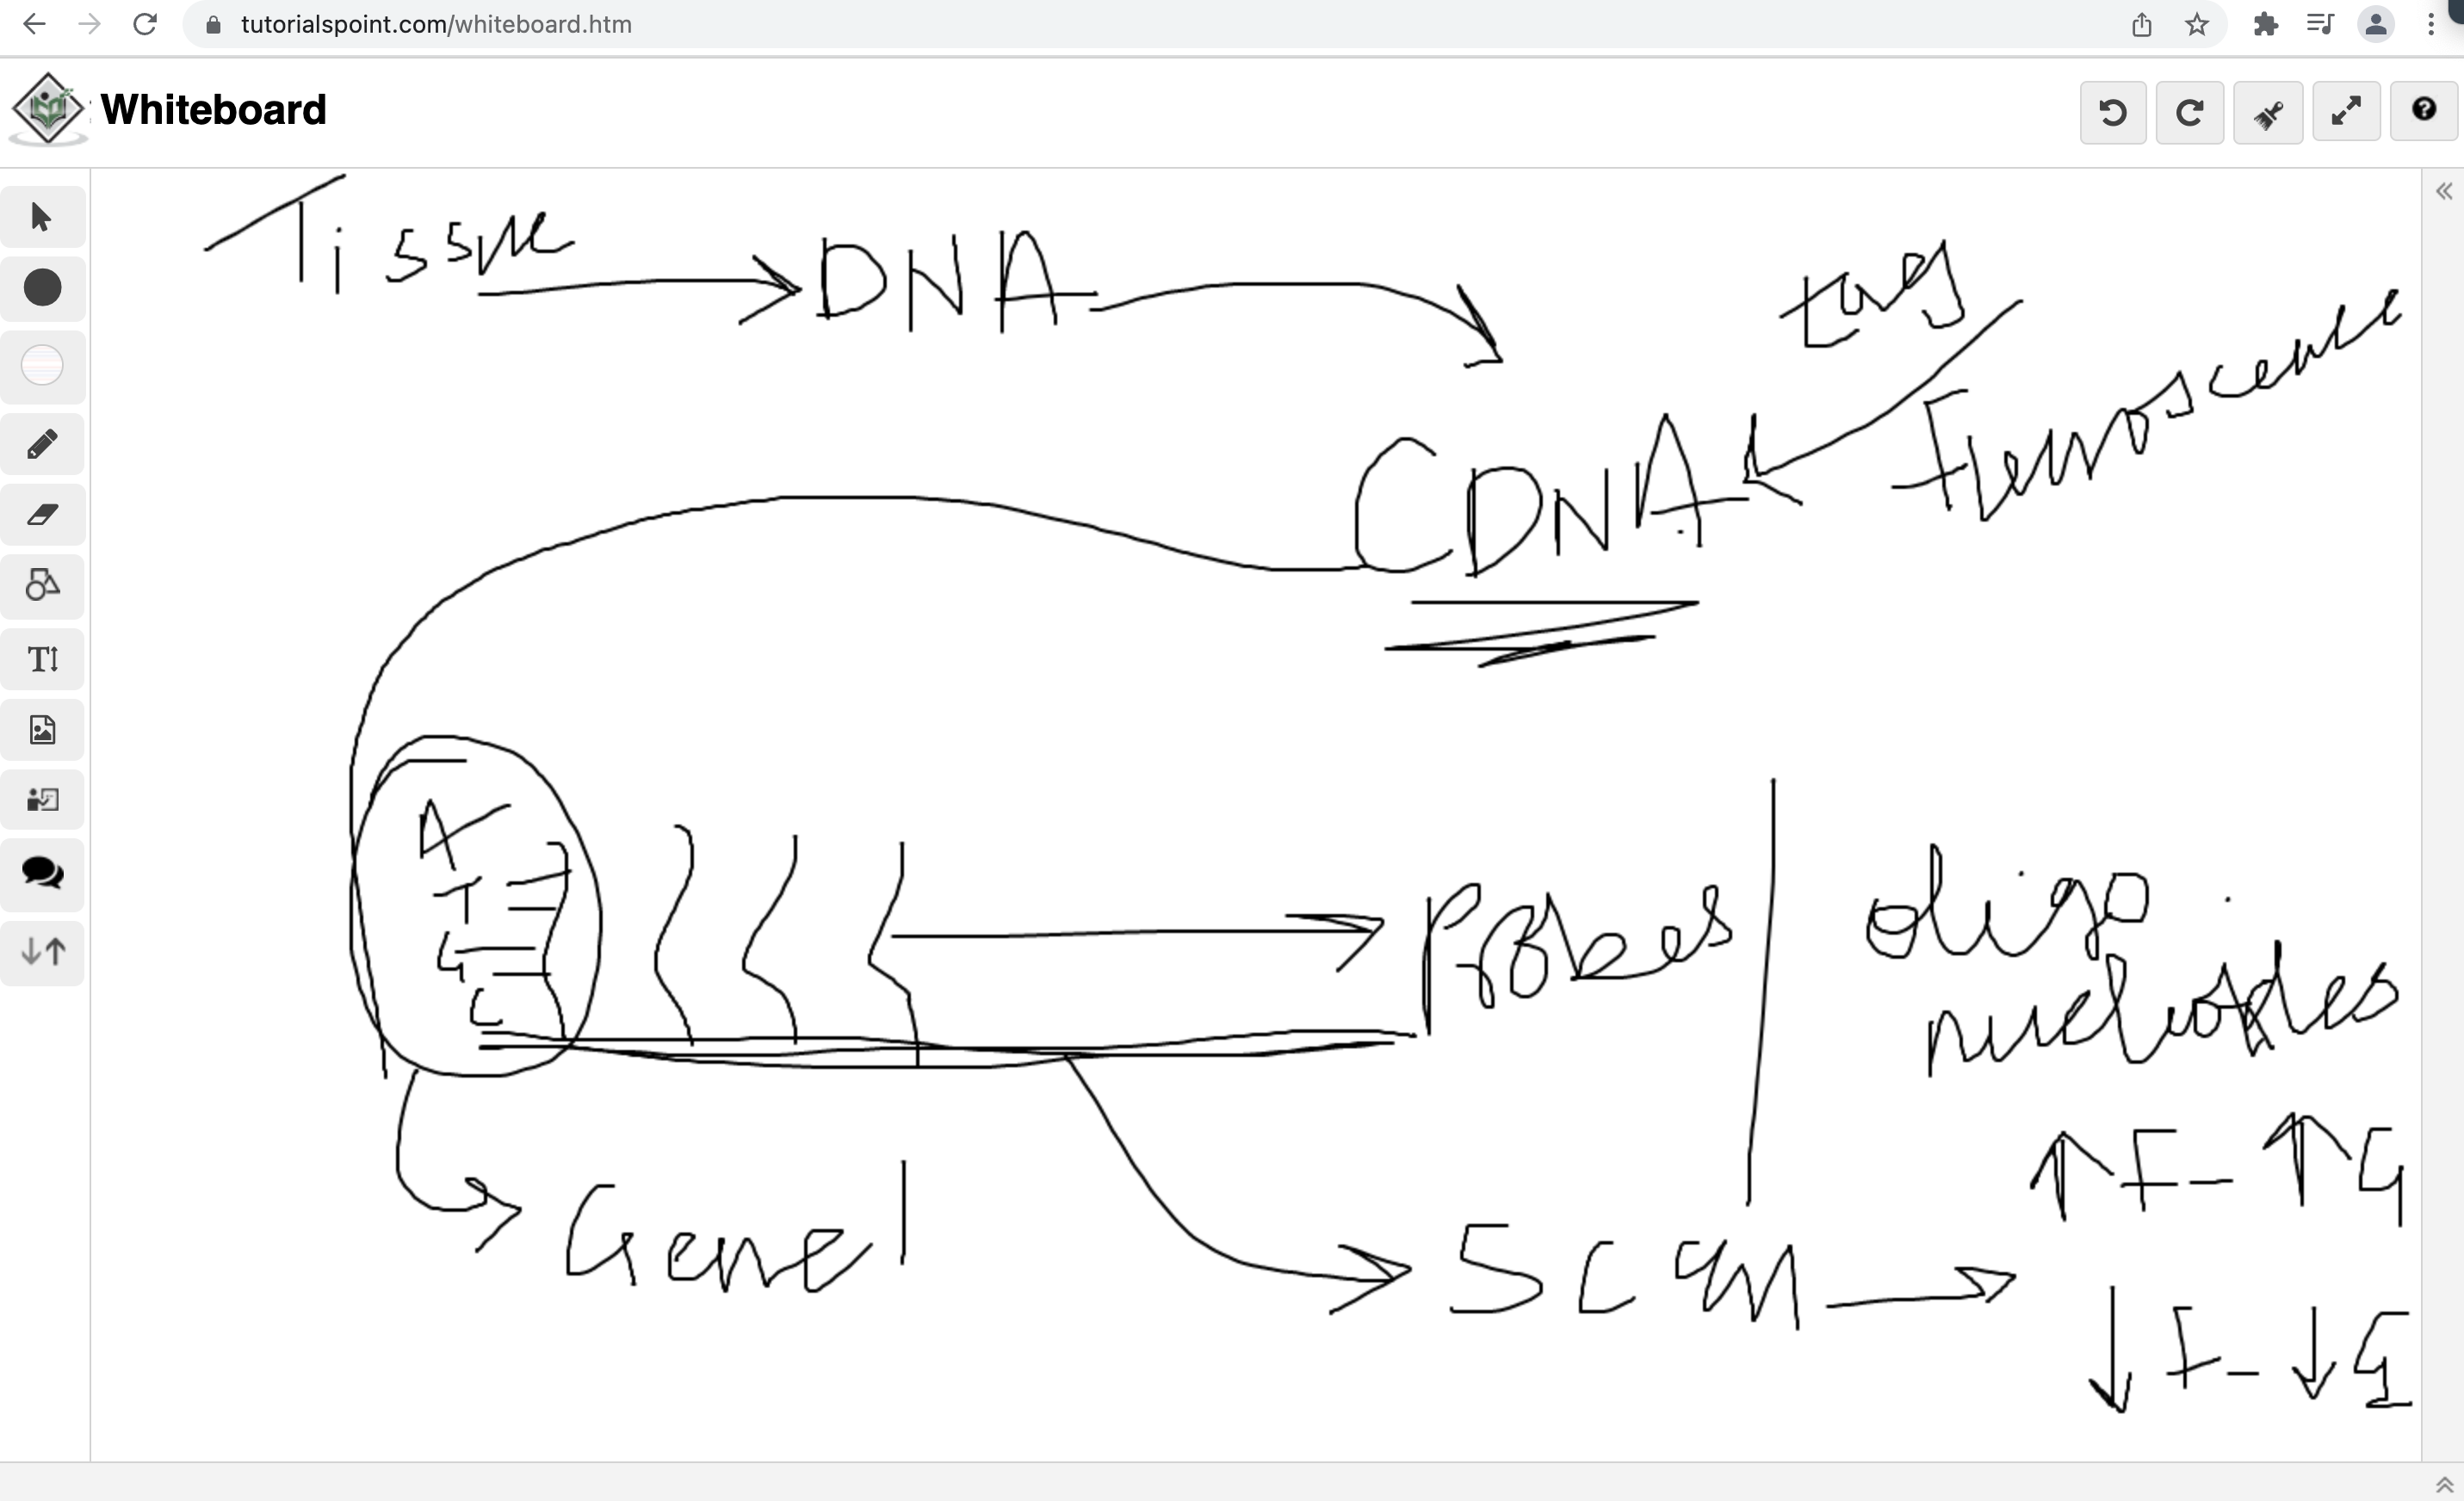 tutorialspoint.com/whiteboard.htm
Whiteboard
Tissue
DNA
tag
Fluroscence
CDNA
A
T
G
C
Probes
oligo
nucleotides
Gene 1
Scan
↑F-↑G
↓F-↓G